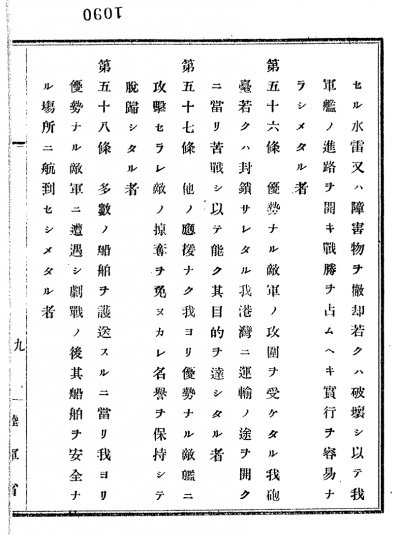 1090
セル水雷又ハ障害物ヲ撤却若クハ破壞シ以テ我
軍艦ノ進路ヲ開キ戰勝ヲ占ムヘキ實行ヲ容易ナ
ラシメタル者
第五十六條 優勢ナル敵軍ノ攻圍ヲ受ケタル我砲
臺若クハ封鎖サレタル我港灣ニ運輸ノ途ヲ開ク
ニ當リ苦戰シ以テ能ク其目的ヲ達シタル者
第五十七條 他ノ應援ナク我ヨリ優勢ナル敵艦ニ
攻擊セラレ敵ノ掠奪ヲ免ヌカレ名譽ヲ保持シテ
脫歸シタル者
第五十八條 多數ノ船舶ヲ護送スルニ當リ我ヨリ
優勢ナル敵軍ニ遭遇シ劇戰ノ後其船舶ヲ安全ナ
ル場所ニ航到セシメタル者
九
陸軍省